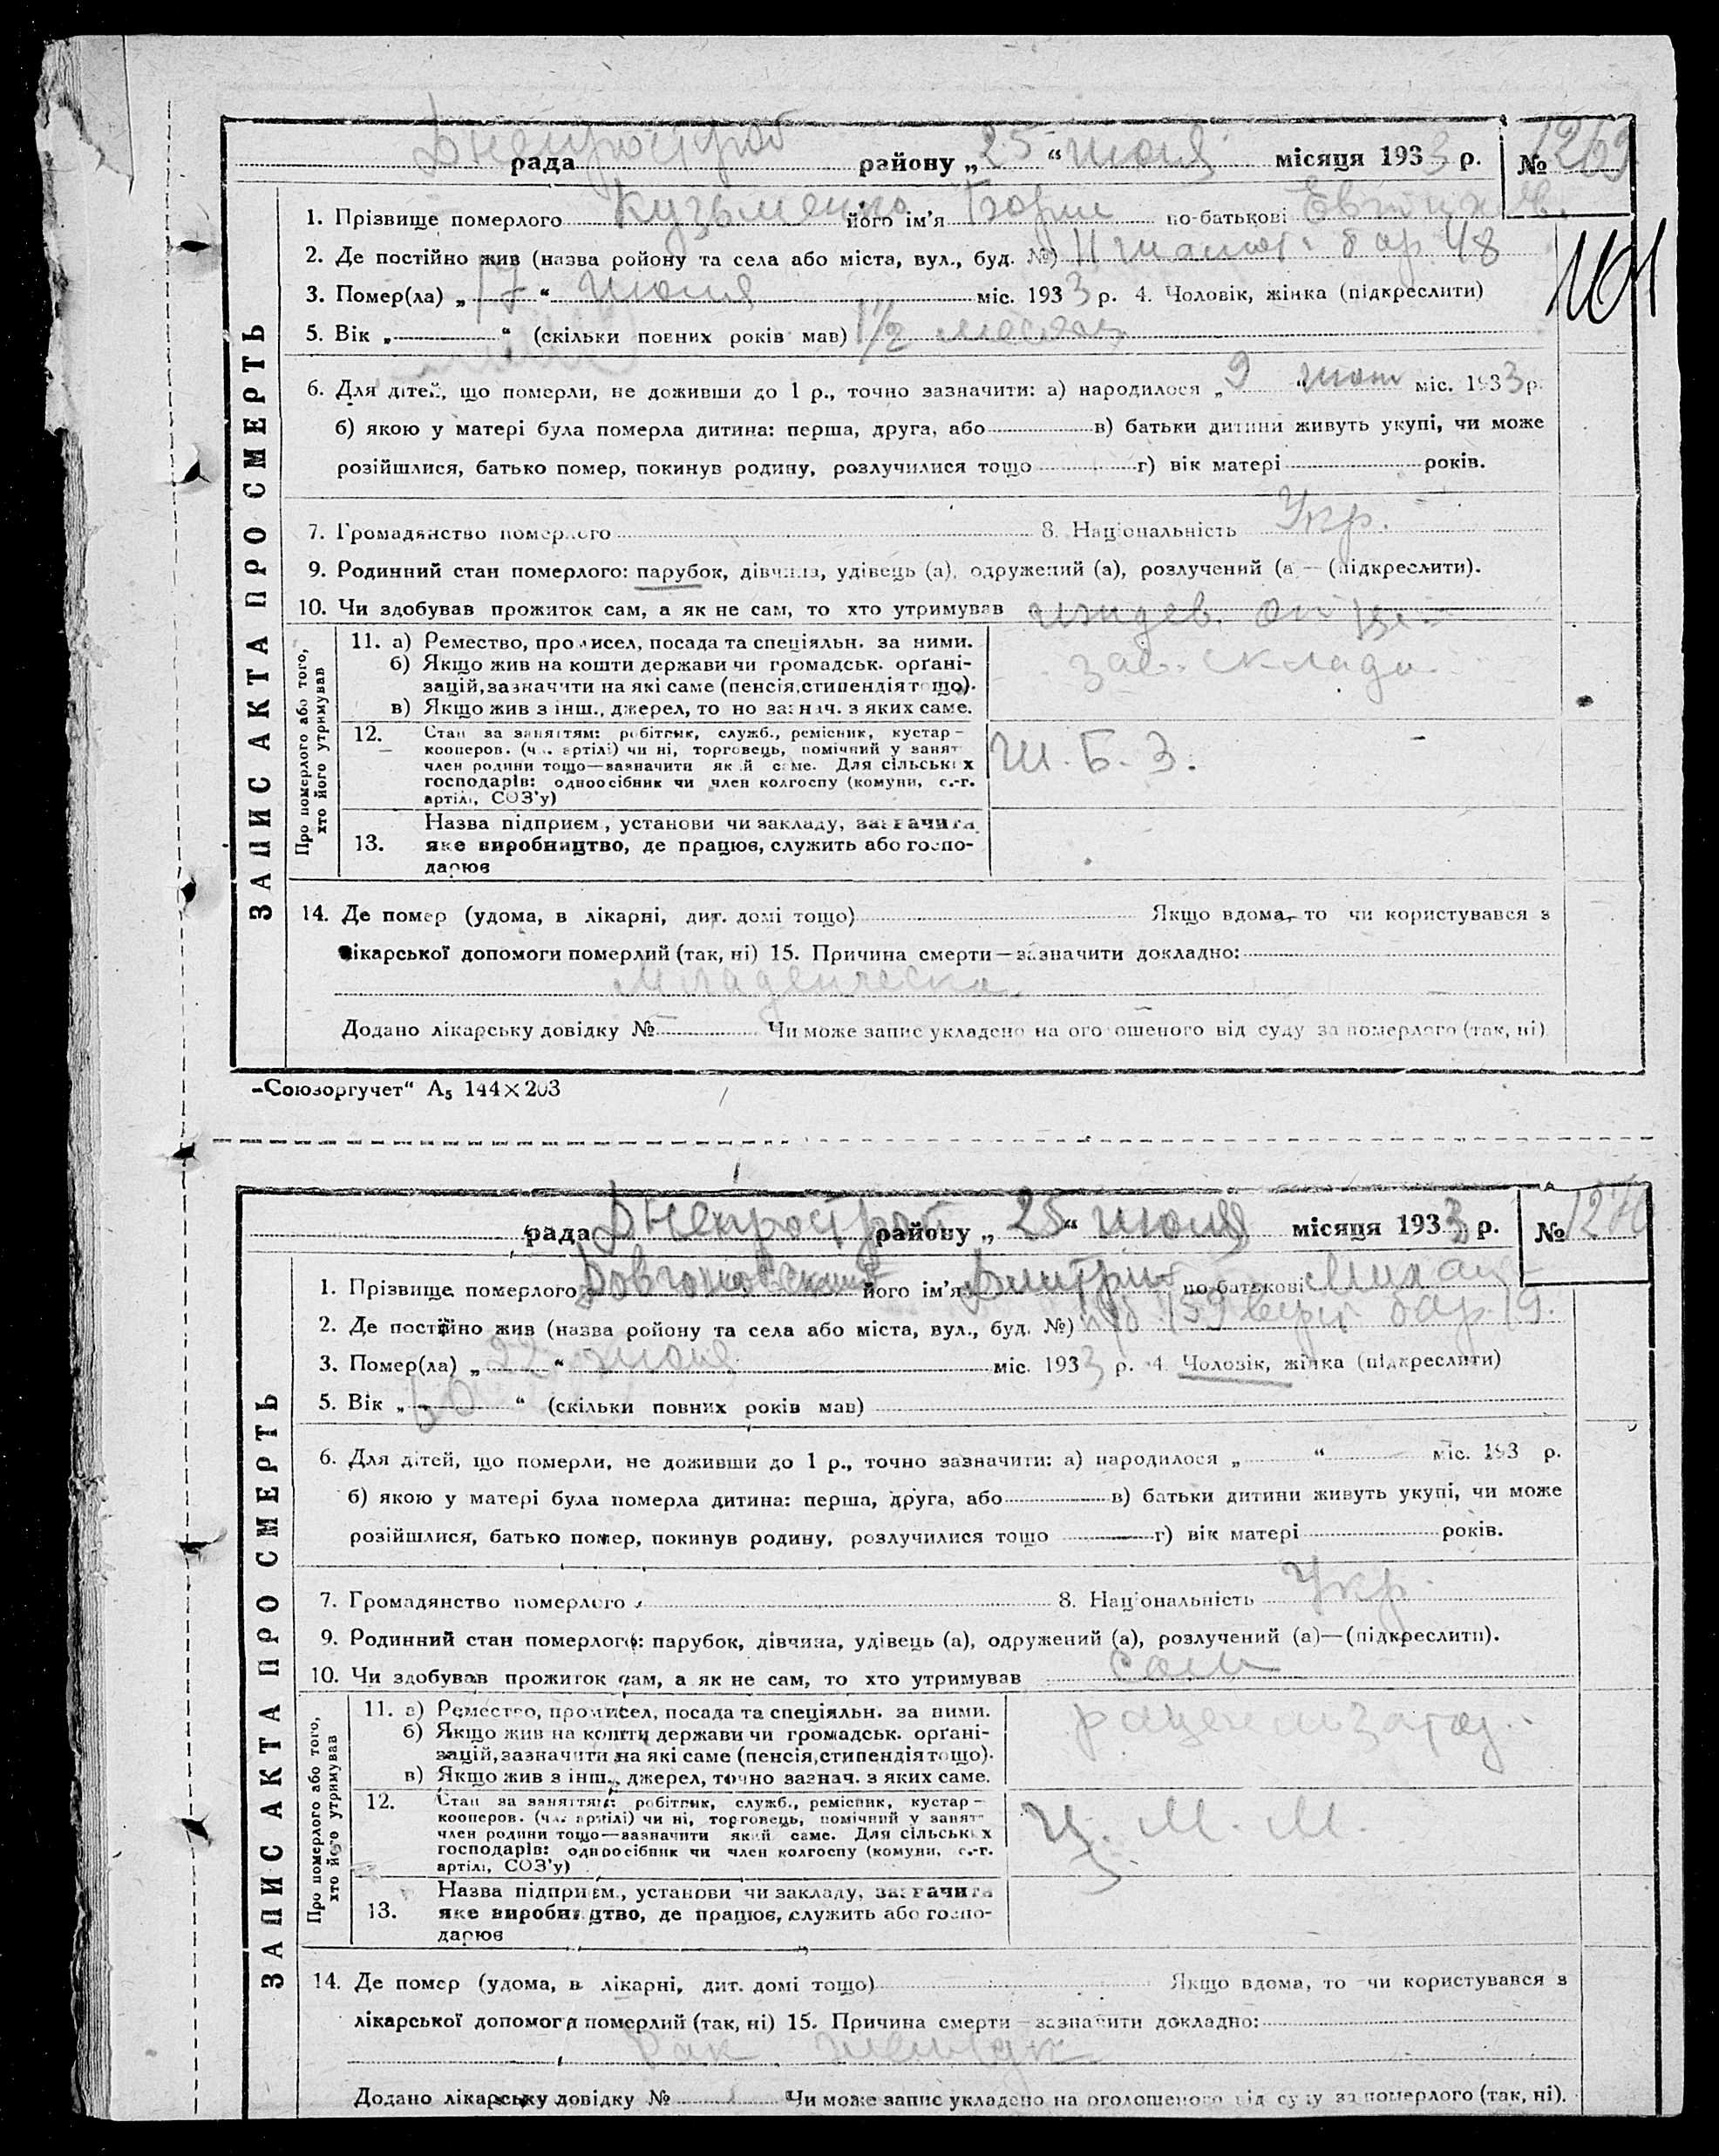 Днепрострой
рада району „25“ июня місяця 1933 р. № 1269
1. Прізвище померлого Кузьменко його ім'я Борис по-батькові
2. Де постійно жив (назва ройону та села або міста, вул., буд. №) бар. 48
101
3. Помер(ла) „17“ июня міс. 1933 р. 4. Чоловік, жінка (підкреслити)
5. Вік „ “ (скільки повних років мав) 1½ месяц
6. Для дітей, що померли, не доживши до 1 р., точно зазначити: а) народилося „9“ міс. 1933 р.
б) якою у матері була померла дитина: перша, друга, або в) батьки дитини живуть укупі, чи може
розійшлися, батько помер, покинув родину, розлучилися тощо г) вік матері років.
7. Громадянство померлого 8. Національність Укр.
9. Родинний стан померлого: парубок, дівчина, удівець (а), одружений (а), розлучений (а) — (підкреслити).
10. Чи здобував прожиток сам, а як не сам, то хто утримував иждев. отца
ЗАПИС АКТА ПРО СМЕРТЬ
Про померлого або того, хто його утримував
11. а) Ремество, промисел, посада та спеціяльн. за ними.
б) Якщо жив на кошти держави чи громадськ. орґані-
зацій, зазначити на які саме (пенсія, стипендія тощо).
в) Якщо жив з інш., джерел, точно зазнач. з яких саме.
зав. склада
12. Стан за заняттям: робітник, служб., ремісник, кустар-
кооперов. (чл. артілі) чи ні, торговець, помічний у занят.
член родини тощо—зазначити який саме. Для сільських
господарів: одноосібник чи член колгоспу (комуни, с.-г.
артілі, СОЗ'у)
Ш. Б. З.
13. Назва підприєм., установи чи закладу, зазначити
яке виробництво, де працює, служить або госпо-
дарює
14. Де помер (удома, в лікарні, дит. домі тощо) Якщо вдома, то чи користувався з
лікарської допомоги померлий (так, ні) 15. Причина смерти—зазначити докладно:
Младенческа
Додано лікарську довідку № Чи може запис укладено на оголошеного від суду за померлого (так, ні)
„Союзоргучет“ А5 144×203
рада Днепрострой району „25“ июня місяця 1933 р. № 1270
1. Прізвище померлого його ім'я Дмитрий по-батькові Михай
2. Де постійно жив (назва ройону та села або міста, вул., буд. №) 159 бар. 19.
3. Помер(ла) „22“ июня міс. 1933 р. 4. Чоловік, жінка (підкреслити)
5. Вік „60“ (скільки повних років мав)
6. Для дітей, що померли, не доживши до 1 р., точно зазначити: а) народилося „ “ міс. 193 р.
б) якою у матері була померла дитина: перша, друга, або в) батьки дитини живуть укупі, чи може
розійшлися, батько помер, покинув родину, розлучилися тощо г) вік матері років.
7. Громадянство померлого 8. Національність Укр.
9. Родинний стан померлого: парубок, дівчина, удівець (а), одружений (а), розлучений (а)—(підкреслити).
10. Чи здобував прожиток сам, а як не сам, то хто утримував сам
ЗАПИС АКТА ПРО СМЕРТЬ
Про померлого або того, хто його утримував
11. а) Ремество, промисел, посада та спеціяльн. за ними.
б) Якщо жив на кошти держави чи громадськ. орґані-
зацій, зазначити на які саме (пенсія, стипендія тощо).
в) Якщо жив з інш., джерел, точно зазнач. з яких саме.
12. Стан за заняттям: робітник, служб., ремісник, кустар-
кооперов. (чл. артілі) чи ні, торговець, помічний у занят.
член родини тощо—зазначити який саме. Для сільських
господарів: одноосібник чи член колгоспу (комуни, с.-г.
артілі, СОЗ'у)
Ц. М. М.
13. Назва підприєм., установи чи закладу, зазначити
яке виробництво, де працює, служить або госпо-
дарює
14. Де помер (удома, в лікарні, дит. домі тощо) Якщо вдома, то чи користувався з
лікарської допомоги померлий (так, ні) 15. Причина смерти—зазначити докладно:
Рак желудк
Додано лікарську довідку № Чи може запис укладено на оголошеного від суду за померлого (так, ні).